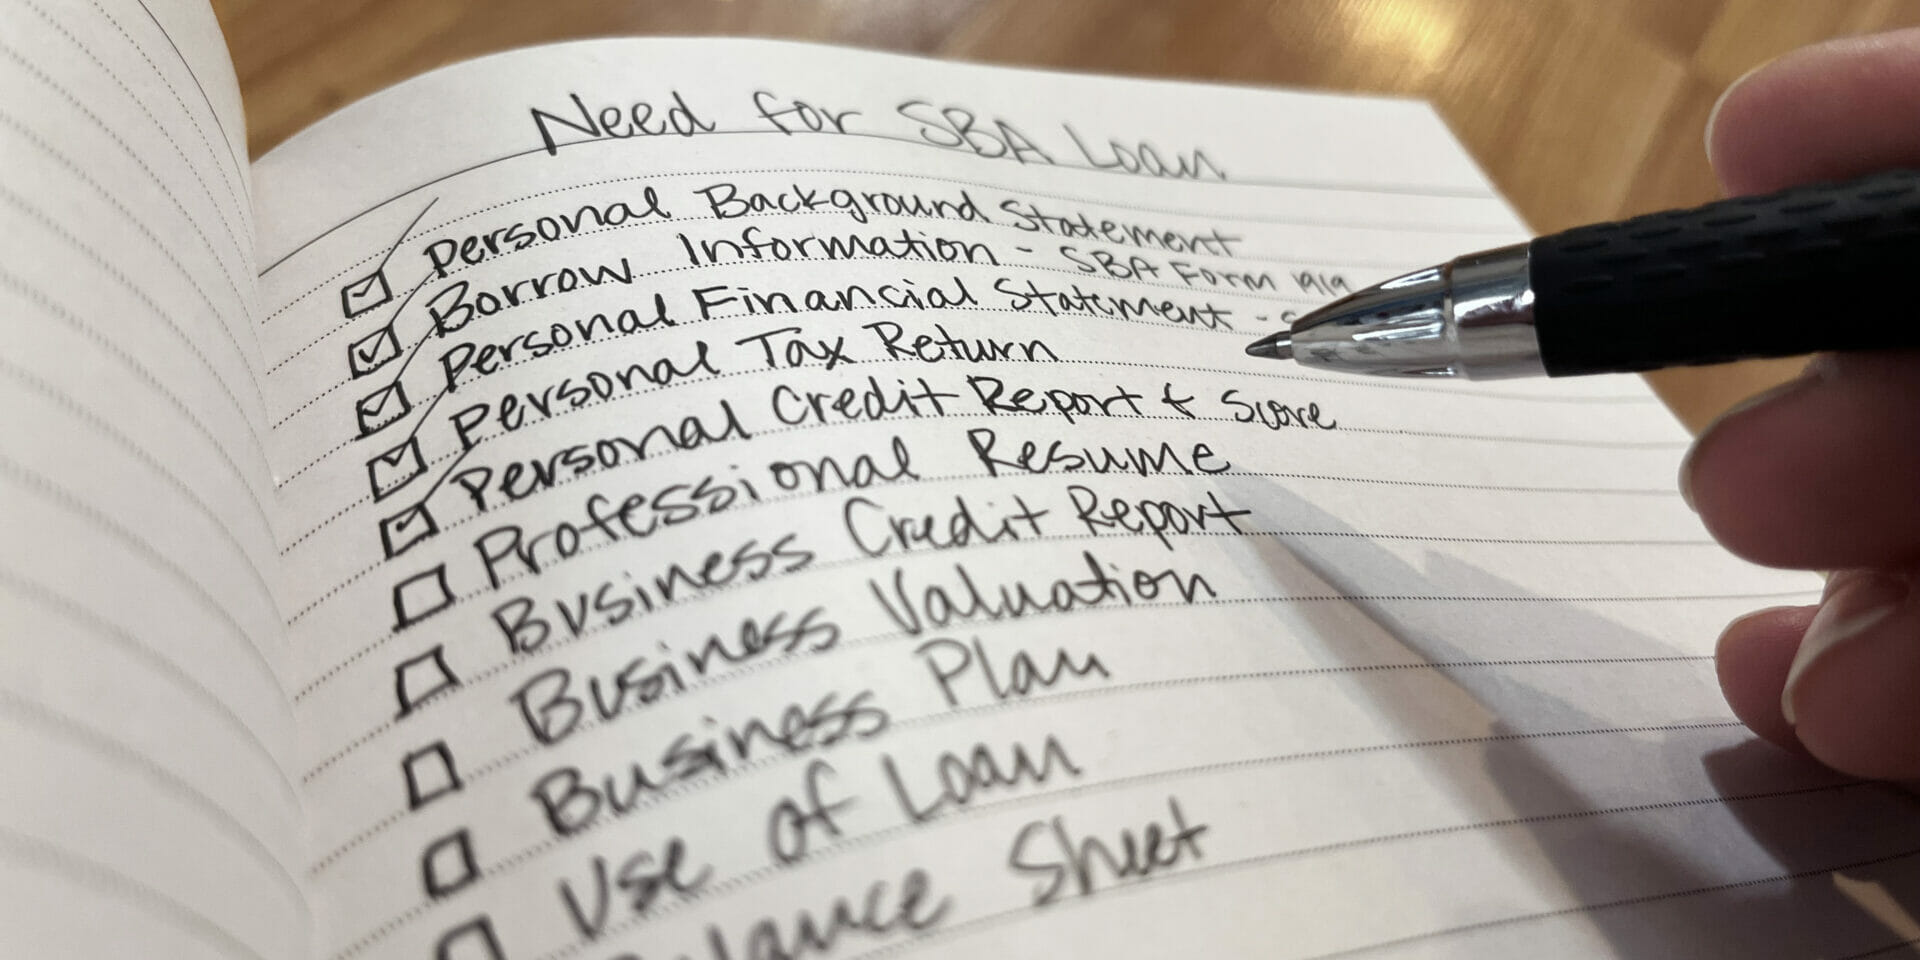 Need for SBA Loan
Personal Background Statement
Borrow Information - SBA Form 1919
Personal Financial Statement -
Personal Tax Return
Personal Credit Report & Score
Professional Resume
Business Credit Report
Business Valuation
Business Plan
Use of Loan
Sheet